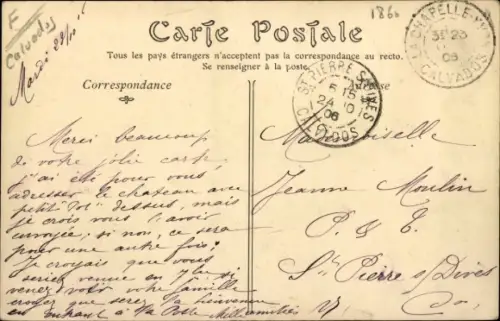 F
Calvados
Mardi 23/10
1860
Carte Postale
Tous les pays étrangers n'acceptent pas la correspondance au recto.
Se renseigner à la poste.
Correspondance
Adresse
LA CHAPELLE-YVON
CALVADOS
ST PIERRE S/DIVES
5 15
24 10
06
CALVADOS
Merci beaucoup
de votre jolie carte,
j'ai été pour vous
adresser le chateau avec
petit "Dot" dessus, mais
je crois vous l'avoir
envoyée; si non, ce sera
pour une autre fois.
Je croyais que vous
seriez venue en
venez voir votre famille
croyez que serez la bienvenue
en entrant à la Poste Mille amitiés
Mademoiselle
Jeanne Moulin
P. & T.
St Pierre s/Dives
Cos.